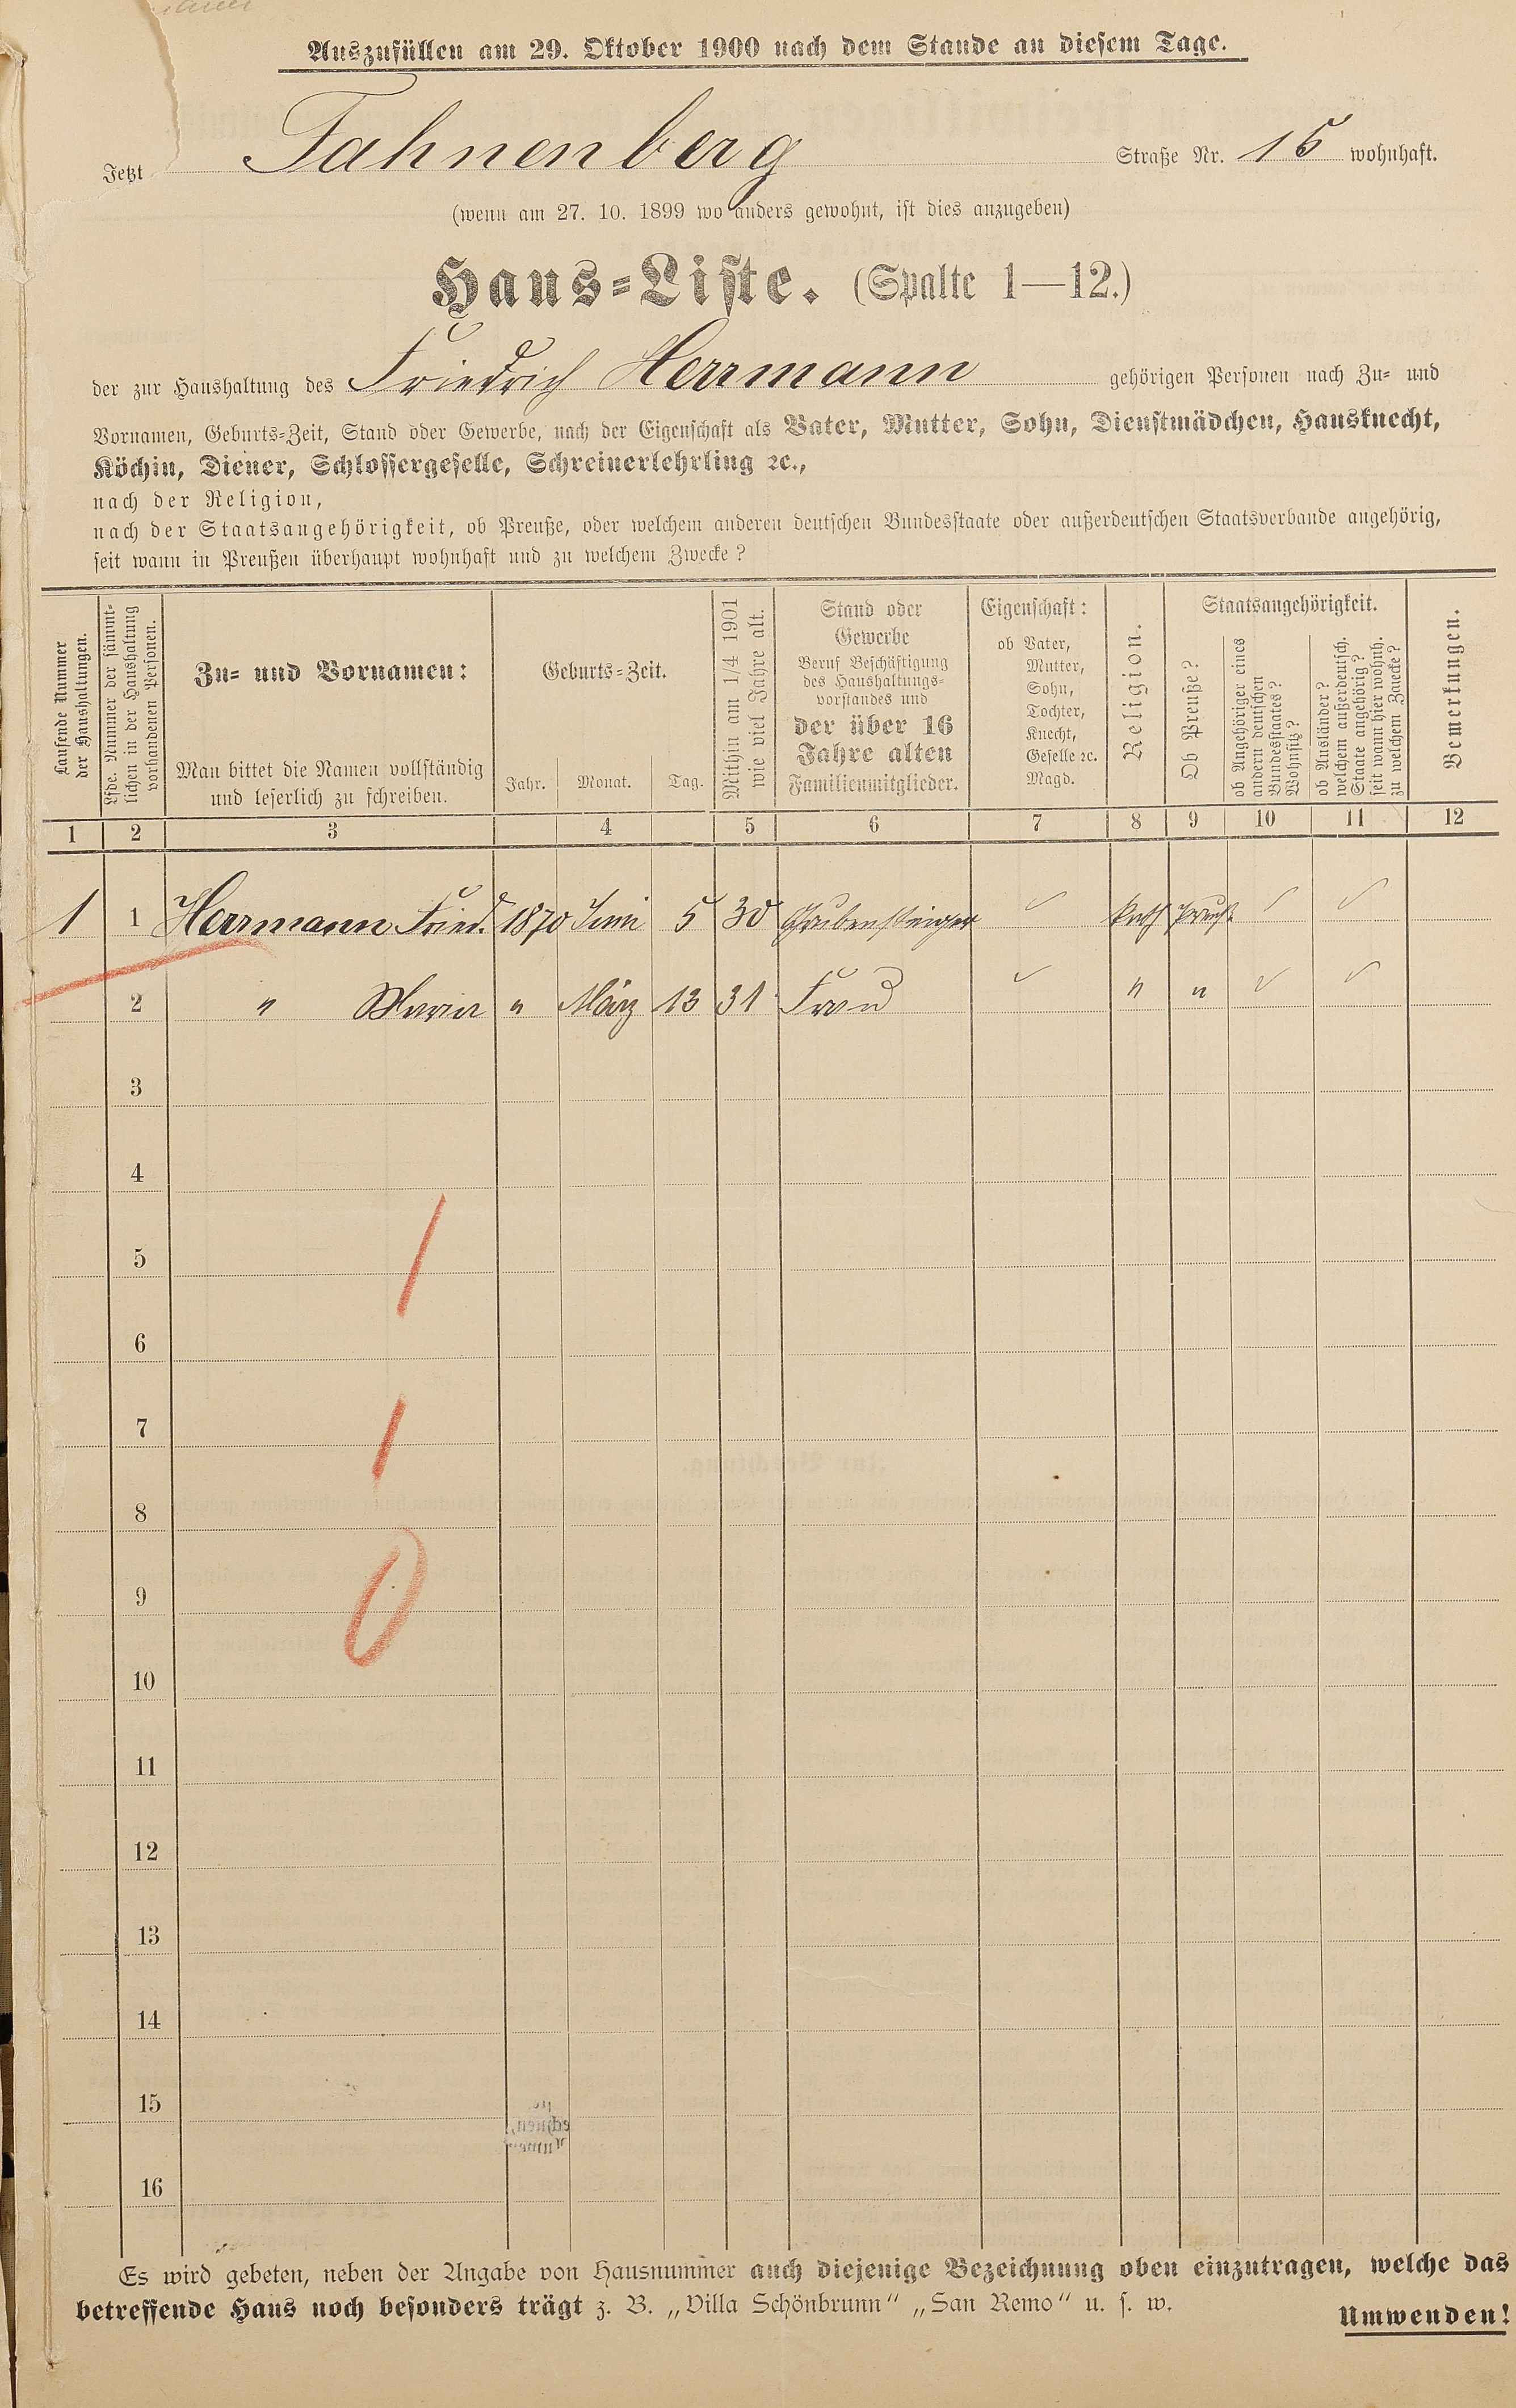 Auszufüllen am 29. Oktober 1900 nach dem Stande an diesem Tage.
Jetzt Fahnenberg Straße Nr. 15 wohnhaft.
(wenn am 27. 10. 1899 wo anders gewohnt, ist dies anzugeben)
Haus-Liste. (Spalte 1—12.)
der zur Haushaltung des Friedrich Herrmann gehörigen Personen nach Zu- und
Vornamen, Geburts-Zeit, Stand oder Gewerbe, nach der Eigenschaft als Vater, Mutter, Sohn, Dienstmädchen, Hausknecht,
Köchin, Diener, Schlossergeselle, Schreinerlehrling ꝛc.,
nach der Religion,
nach der Staatsangehörigkeit, ob Preuße, oder welchem anderen deutschen Bundesstaate oder außerdeutschen Staatsverbande angehörig,
seit wann in Preußen überhaupt wohnhaft und zu welchem Zwecke?
Laufende Nummer
der Haushaltungen.
Lfde. Nummer der sämmt-
lichen in der Haushaltung
vorhandenen Personen.
Zu- und Vornamen:
Man bittet die Namen vollständig
und leserlich zu schreiben.
Geburts-Zeit.
Jahr. Monat. Tag.
Mithin am 1/4 1901
wie viel Jahre alt.
Stand oder
Gewerbe
Beruf Beschäftigung
des Haushaltungs-
vorstandes und
der über 16
Jahre alten
Familienmitglieder.
Eigenschaft:
ob Vater,
Mutter,
Sohn,
Tochter,
Knecht,
Geselle ꝛc.
Magd.
Religion.
Staatsangehörigkeit.
Ob Preuße?
ob Angehöriger eines
andern deutschen
Bundesstaates?
Wohnsitz?
ob Ausländer?
welchem außerdeutsch.
Staate angehörig?
seit wann hier wohnh.
zu welchem Zwecke?
Bemerkungen.
1 2 3 4 5 6 7 8 9 10 11 12
1 1 Herrmann Fried. 1870 Juni 5 30 Kath Preuß
2 " Maria " März 13 31 Frau " "
3
4
5
6
7
8
9
10
11
12
13
14
15
16
Es wird gebeten, neben der Angabe von Hausnummer auch diejenige Bezeichnung oben einzutragen, welche das
betreffende Haus noch besonders trägt z. B. „Villa Schönbrunn“ „San Remo“ u. s. w.
Umwenden!